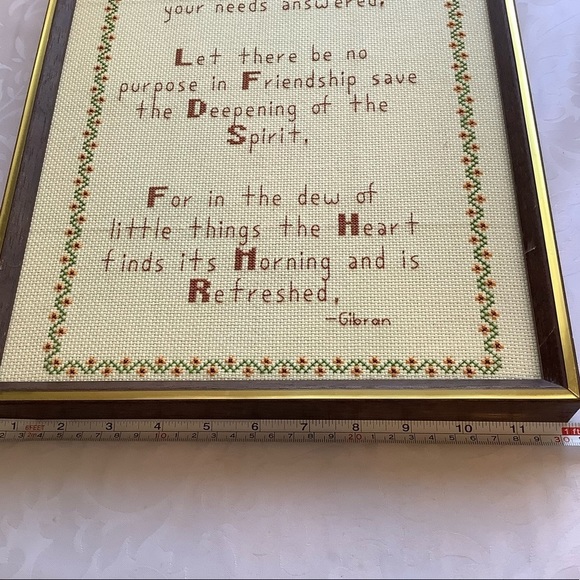 your needs answered,
Let there be no
purpose in Friendship save
the Deepening of the
Spirit,
For in the dew of
little things the Heart
finds its Morning and is
Refreshed,
—Gibran
1 2 3 4 5 6 7 8 9 10 11 1ft